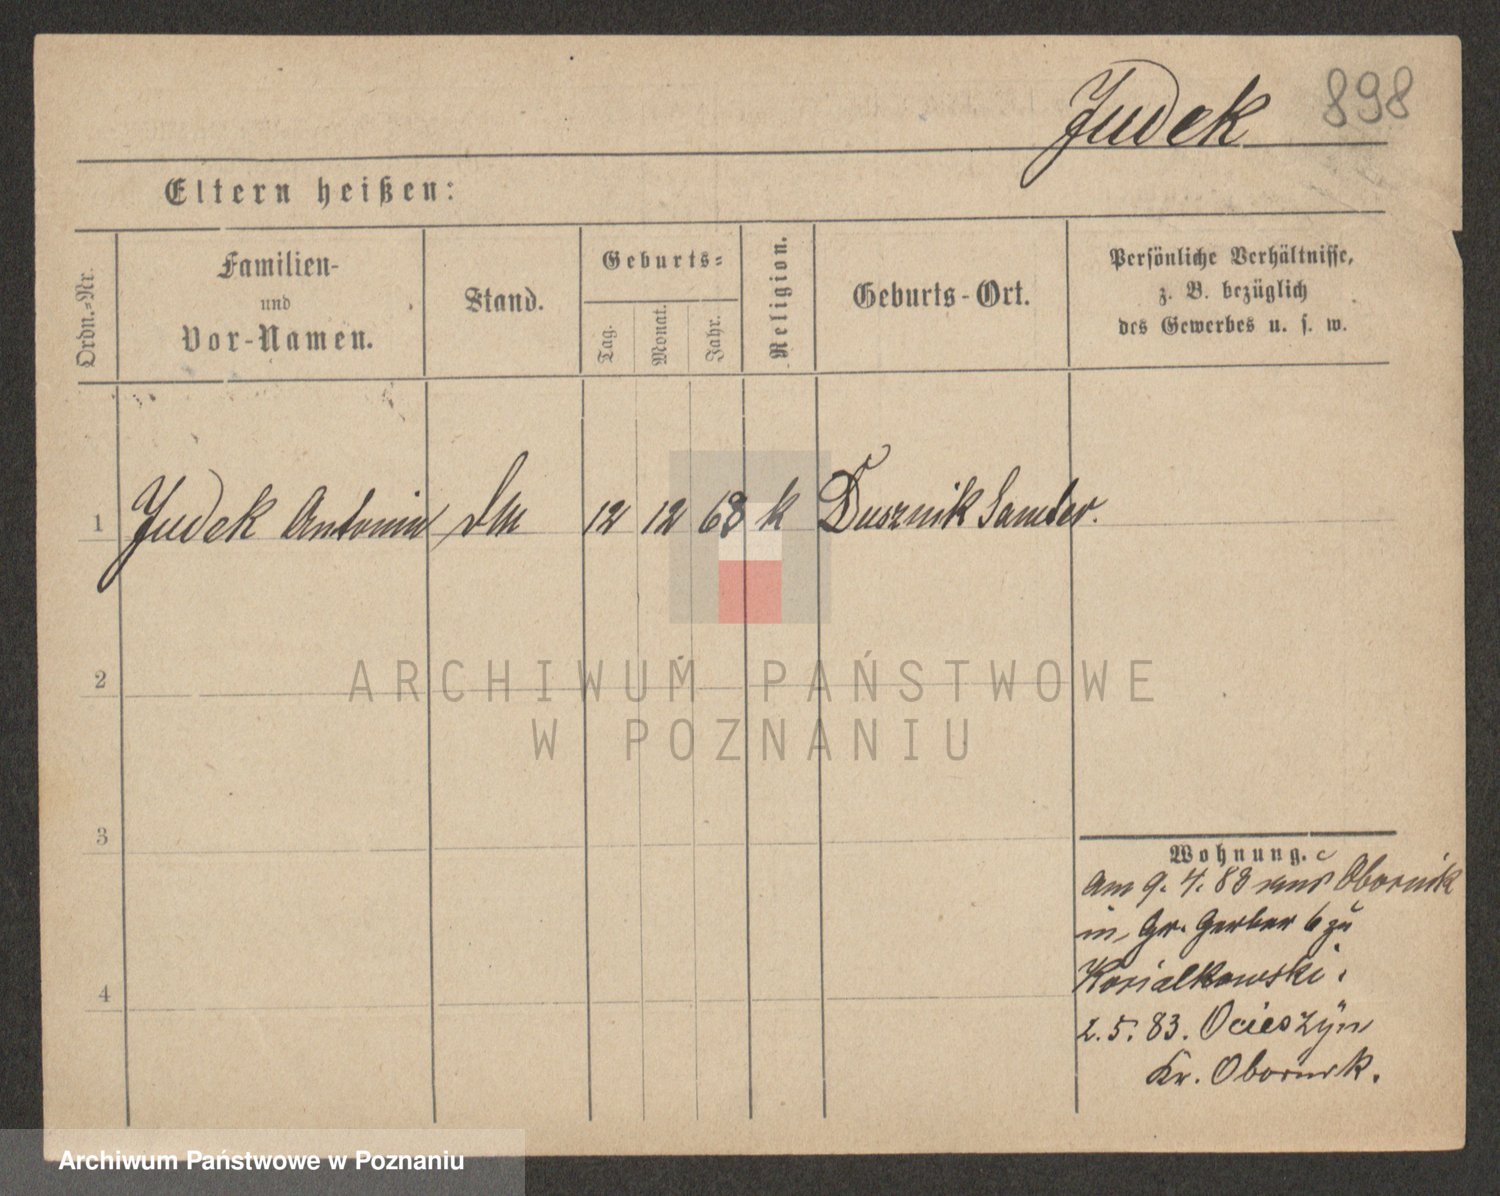 Judek 898
Eltern heißen:
Ordn.-Nr.
Familien-
und
Vor-Namen.
Stand.
Geburts-
Tag.
Monat.
Jahr.
Religion.
Geburts-Ort.
Persönliche Verhältnisse,
z. B. bezüglich
des Gewerbes u. s. w.
1 Judek Antonin 12 12 68 k Dusznik Samter.
2
3
4
Wohnung.
am 9. 4. 83 aus Obornik
in Gr. Gerber 6 zu
2. 5. 83. Ocieszyn
Kr. Obornik.
ARCHIWUM PAŃSTWOWE
W POZNANIU
Archiwum Państwowe w Poznaniu